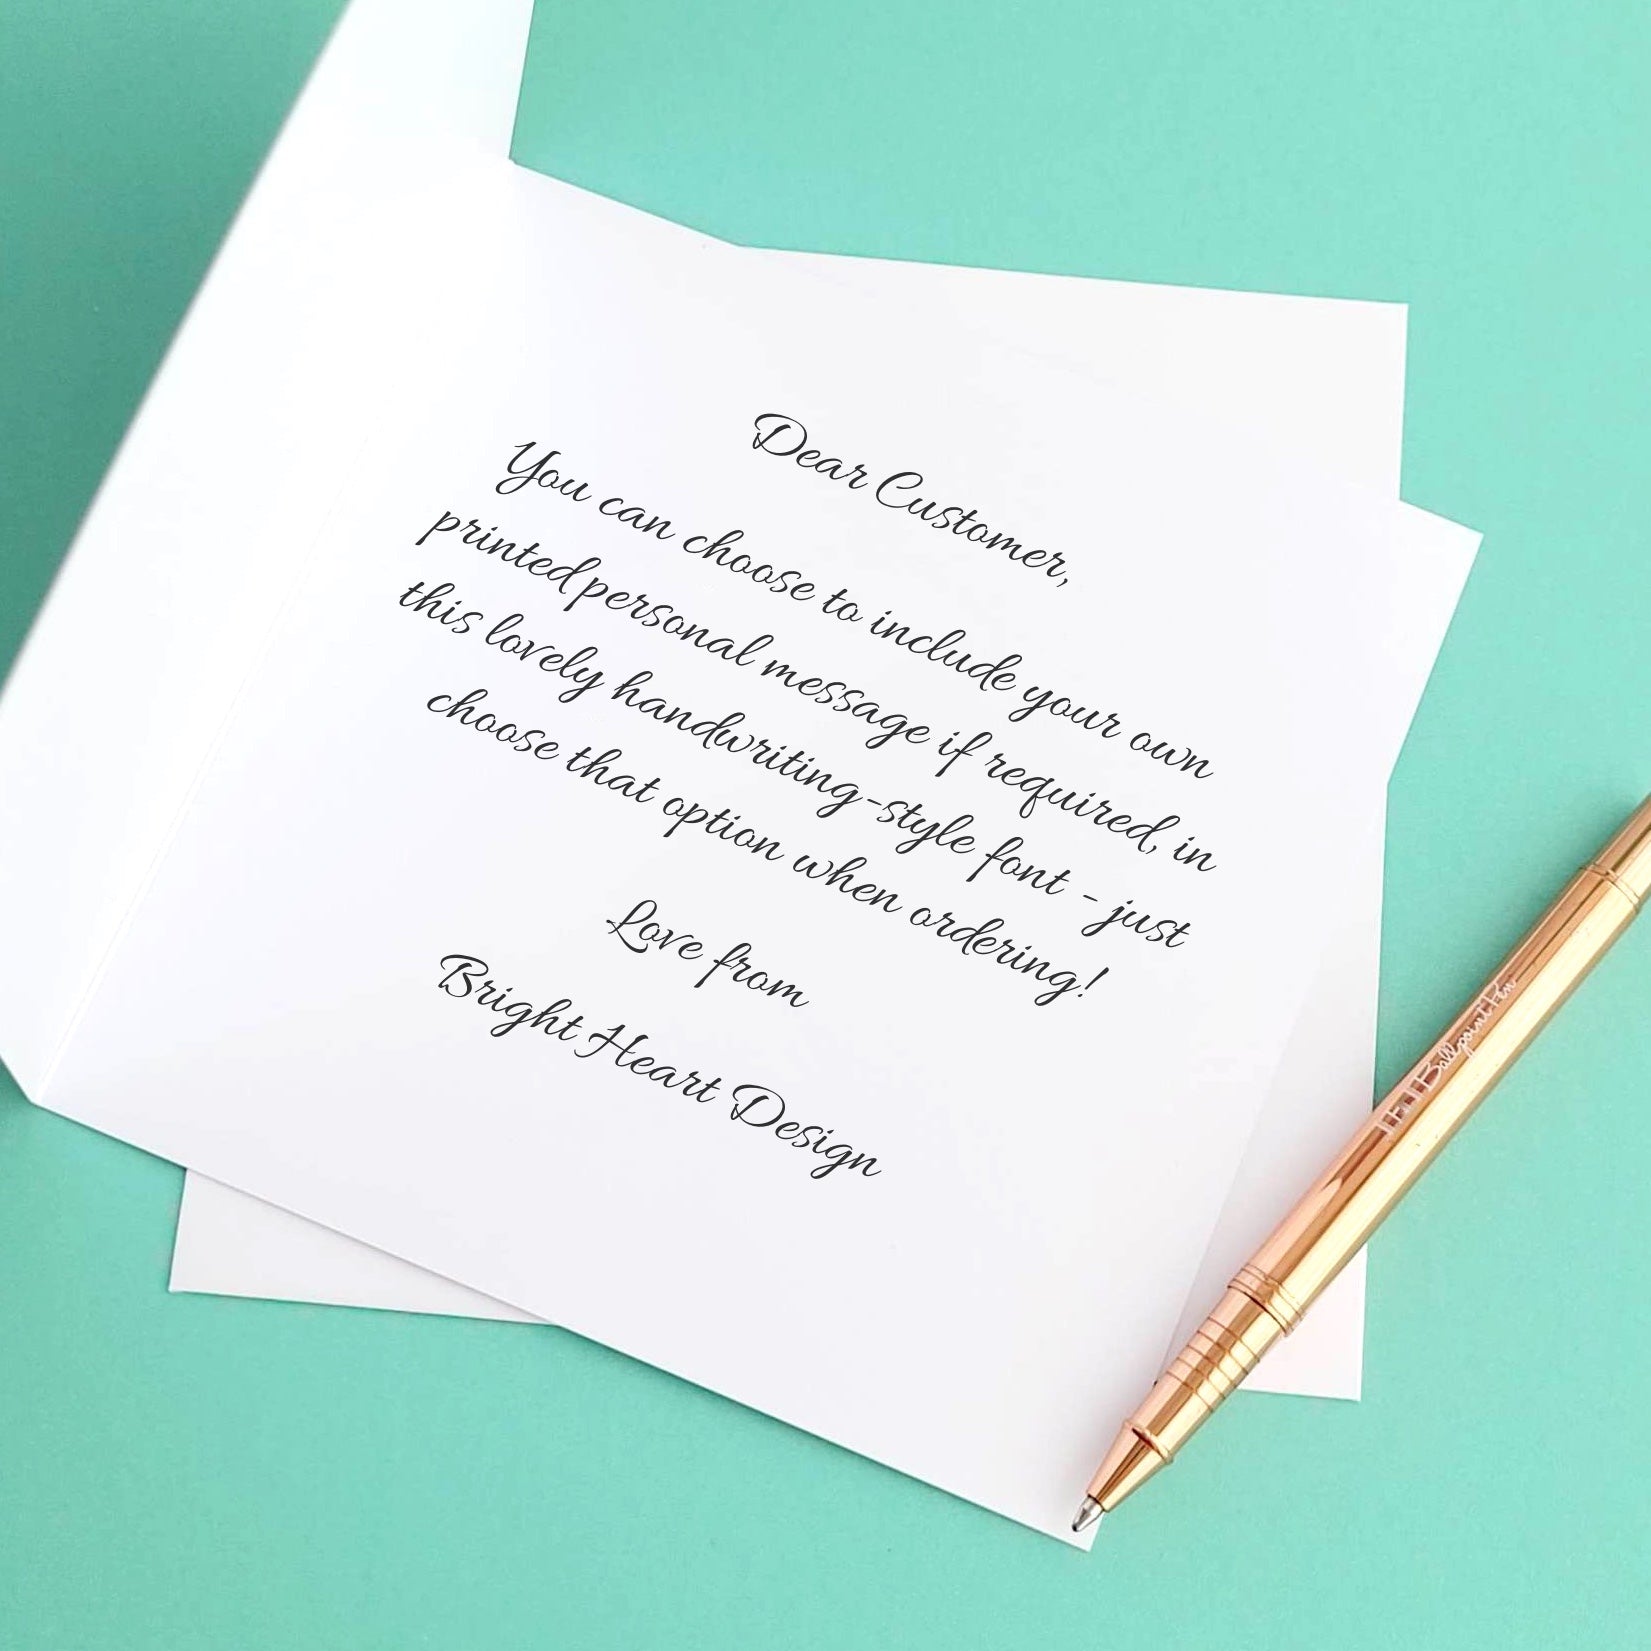 Dear Customer,
You can choose to include your own
printed personal message if required, in
this lovely handwriting-style font - just
choose that option when ordering!
Love from
Bright Heart Design
Ballpoint Pen